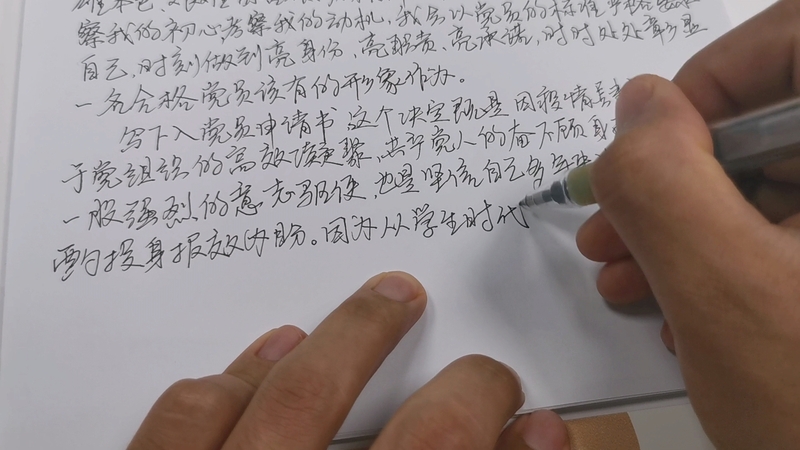 察我的初心,考察我的动机,我会以党员的标准严格
自己,时刻做到亮身份、亮职责、亮承诺,时时处处彰显
一名合格党员该有的形象作为。
写下入党员申请书这个决定既是因疫情
于党组织的高效凝聚,共产党人的奋不顾身
一股强烈的意志驱使,也是坚信自己多年
要投身报效。因为从学生时代